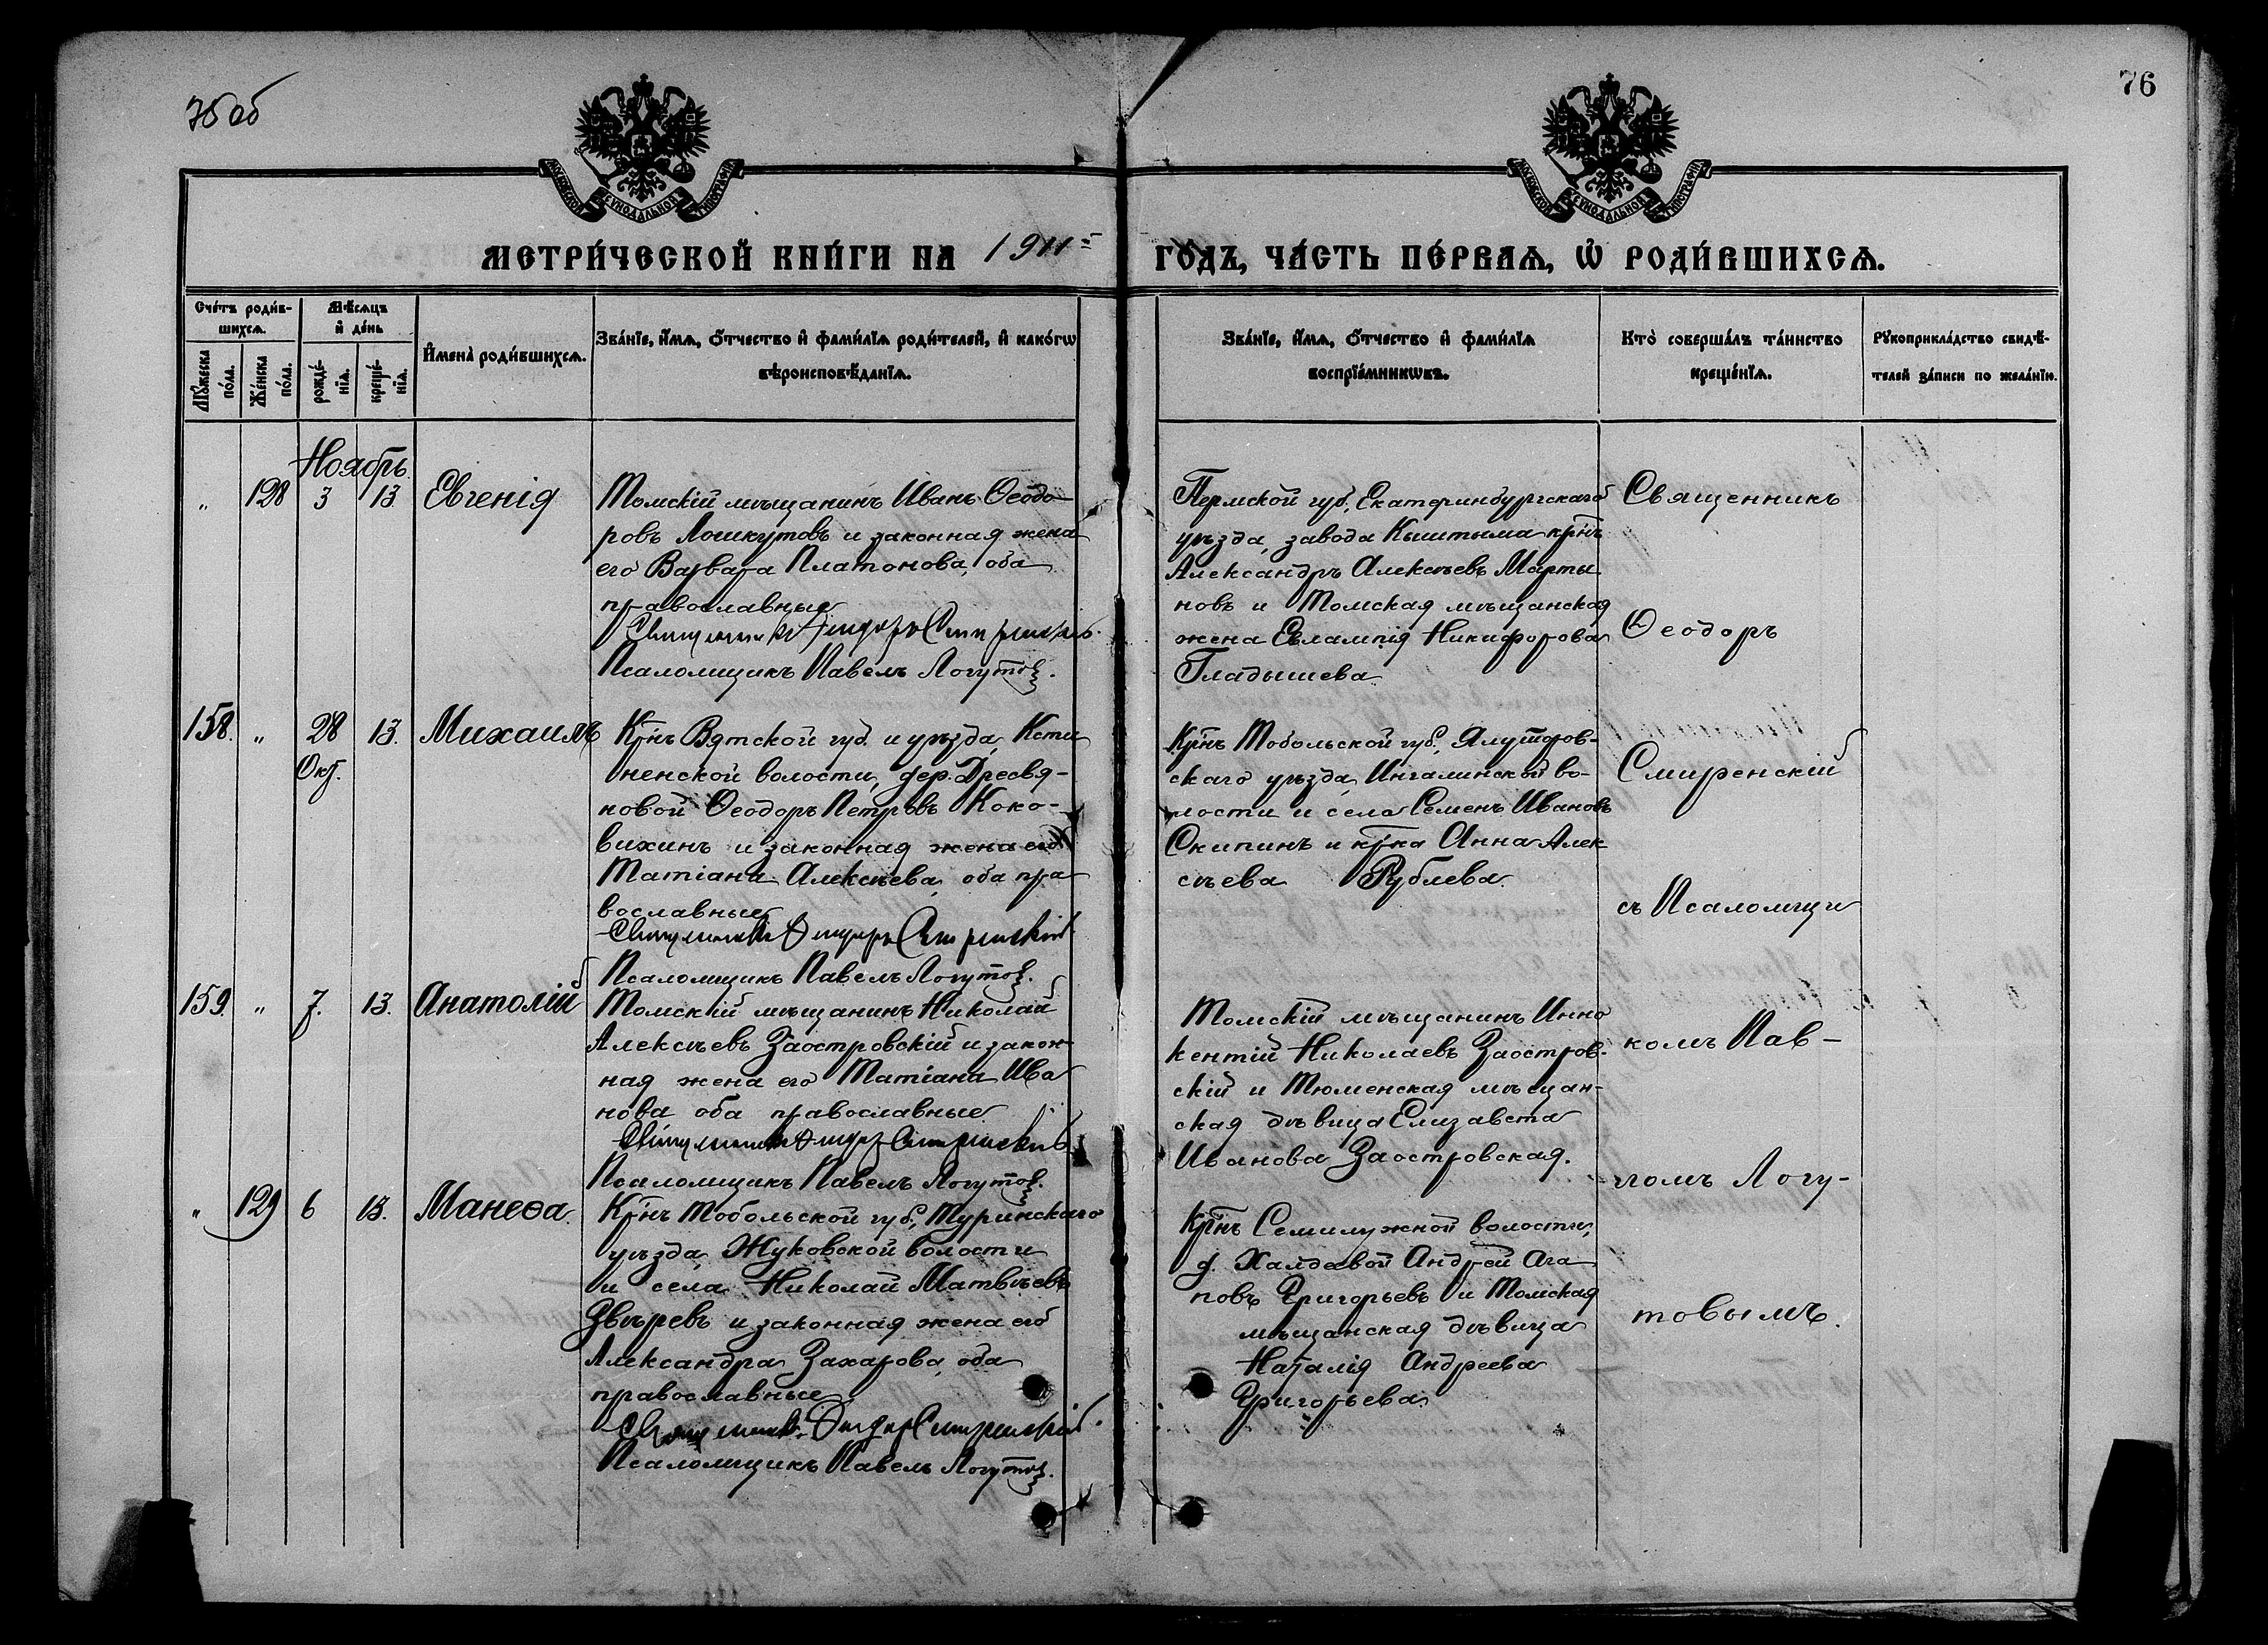 75 об
76
МОСКОВСКОЙ СѴНОДАЛЬНОЙ ТИПОГРАФІИ
МОСКОВСКОЙ СѴНОДАЛЬНОЙ ТИПОГРАФІИ
МЕТРИ́ЧЕСКОЙ КНИ́ГИ НА 1911 ГО́ДЪ, ЧА́СТЬ ПЕ́РВАѦ, Ѡ҆ РОДИ́ВШИХСѦ.
Сче́тъ роди́в-
шихсѧ.
Мѣ́сѧцъ
и҆ де́нь
Мꙋ́жеска
по́ла.
Же́нска
по́ла.
рожде́-
нїѧ.
креще́-
нїѧ.
И҆мена̀ роди́вшихсѧ.
Зва́нїе, и҆́мѧ, ѻ҆́тчество и҆ фами́лїѧ роди́телей, и҆ како́гѡ
вѣроисповѣ́данїѧ.
Зва́нїе, и҆́мѧ, ѻ҆́тчество и҆ фами́лїѧ
воспрїе́мникѡвъ.
Кто̀ соверша́лъ та́инство
креще́нїѧ.
Рꙋкоприкла́дство свидѣ́-
телей за́писи по жела́нїю.
Ноябрь
" 128 3 13. Евгенія
Томскій мѣщанинъ Иванъ Ѳеодо-
ровъ Лошкутовъ и законная жена
его Варвара Платонова, оба
православные
Священникъ Ѳеодоръ Смиренскій.
Псаломщикъ Павелъ Логутовъ.
Пермской губ., Екатеринбургскаго
уѣзда, завода Кыштыма крнъ
Александръ Алексѣевъ Марты
новъ и Томская мѣщанская
жена Евлампія Никифорова
Гладышева
158. " 28 13. Михаилъ
Окт.
Крнъ Вятской губ. и уѣзда, Ксти
ненской волости, дер. Дресвя-
новой Ѳеодоръ Петровъ Коко-
вихинъ и законная жена его
Татіана Алексѣева оба пра
вославные
Священникъ Ѳеодоръ Смиренскій
Псаломщикъ Павелъ Логутовъ.
Крнъ Тобольской губ., Ялуторов-
скаго уѣзда, Ингалинской во-
лости и села Семенъ Ивановъ
Скипинъ и крка Анна Алек
сѣева Рублева.
159. " 7. 13. Анатолій
Томскій мѣщанинъ Николай
Алексѣевъ Заостровскій и закон-
ная жена его Татіана Ива
нова оба православные
Священникъ Ѳеодоръ Смиренскій
Псаломщикъ Павелъ Логутовъ.
Томскій мѣщанинъ Инно
кентій Николаевъ Заостров-
скій и Тюменская мѣщан-
ская дѣвица Елизавета
Иванова Заостровская.
" 129 6 13. Манеѳа.
Крнъ Тобольской губ., Туринскаго
уѣзда, Жуковской волости
и села Николай Матвѣевъ
Звѣревъ и законная жена его
Александра Захарова, оба
православные
Священникъ Ѳеодоръ Смиренскій.
Псаломщикъ Павелъ Логутовъ.
Крнъ Семилужной волости,
д. Халдеевой Андрей Ага
повъ Григорьевъ и Томская
мѣщанская дѣвица
Наталія Андреева
Григорьева
Священникъ
Ѳеодоръ
Смиренскій
съ Псаломщи
комъ Пав-
ломъ Логу-
товымъ.